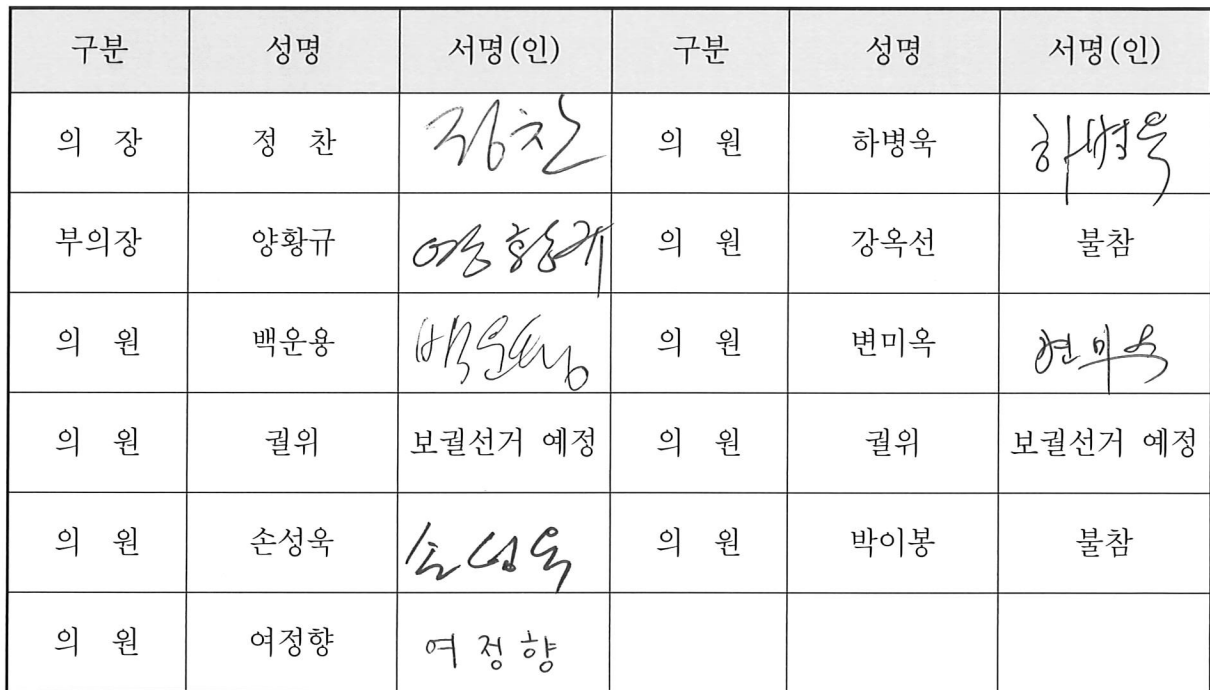 구분 성명 서명(인) 구분 성명 서명(인)
의 장 정 찬 정찬 의 원 하병욱 하병욱
부의장 양황규 양황규 의 원 강옥선 불참
의 원 백운용 백운용 의 원 변미옥 변미옥
의 원 궐위 보궐선거 예정 의 원 궐위 보궐선거 예정
의 원 손성욱 손성욱 의 원 박이봉 불참
의 원 여정향 여정향